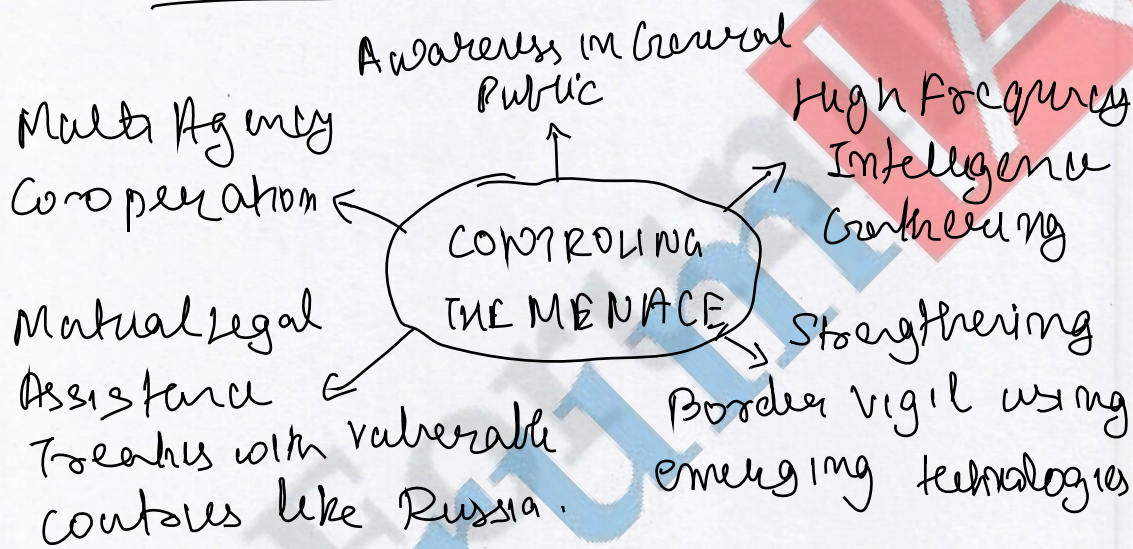 Awareness in General
Public
Multi Agency
Cooperation
High Frequency
Intelligence
Gathering
CONTROLING
THE MENACE
Mutual Legal
Assistance
Treaties with vulnerable
contries like Russia.
Strengthening
Border vigil using
emerging technologies